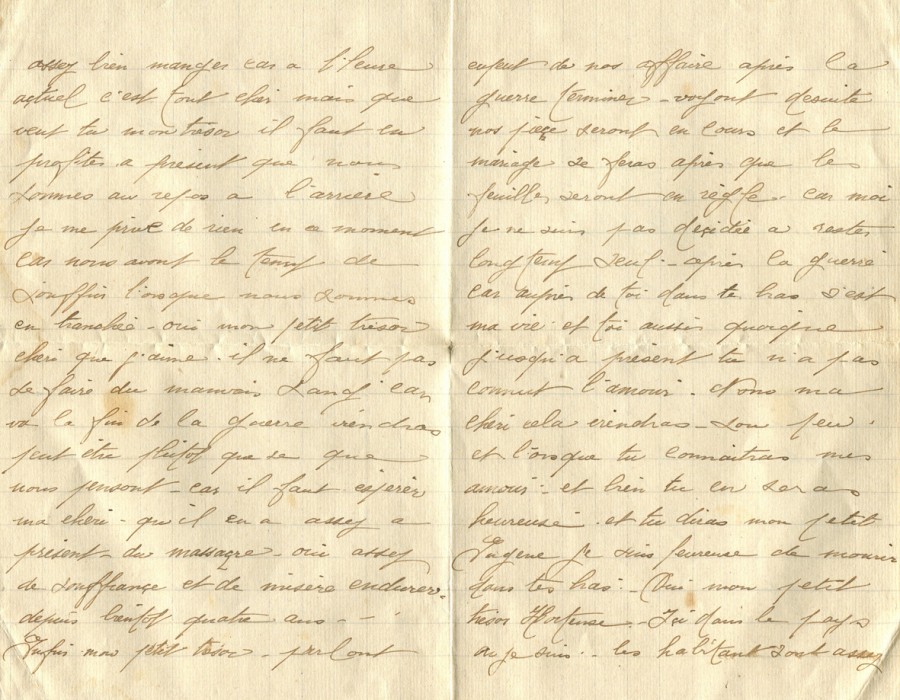 assez bien manger car a l'heure
actuel c'est tout cher mais que
veut tu mon trésor il faut en
profiter a présent que nous
sommes au repos a l'arrière
Je me prive de rien en ce moment
car nous avont le temp de
souffrir l'orsque nous sommes
en tranchée - oui mon petit trésor
cheri que j'aime. il ne faut pas
se faire du mauvais sang car
va la fin de la guerre viendras
peut être plutot que se que
nous pensont - car il faut espérer
ma cheri - qu'il en a assez a
présent - du massacre - oui assez
de souffrance et de misère endurer -
depuis bientot quatre ans - - -
Enfin mon petit trésor - parlont
enfent de nos affaire après la
guerre terminer - voyont desuite
nos pièce seront en cours et le
mariage se feras après que les
feuilles seront en règle - car moi
Je ne suis pas décidée a rester
longtemp seul - après la guerre
car auprès de toi dans te bras s'est
ma vie et toi aussi quoique
j'usqu'a présent tu n'a pas
connut l'amour. Nons ma
chéri cela viendras - sou peu.
et l'orsque tu connaitras mes
amour : et bien tu en seras
heureuse. et tu diras mon petit
Eugène je suis heureuse de mourir
dans tes bras. - Oui mon petit
trésor Hortense - Ici dans le pays
ou je suis. - les habitant sont assez